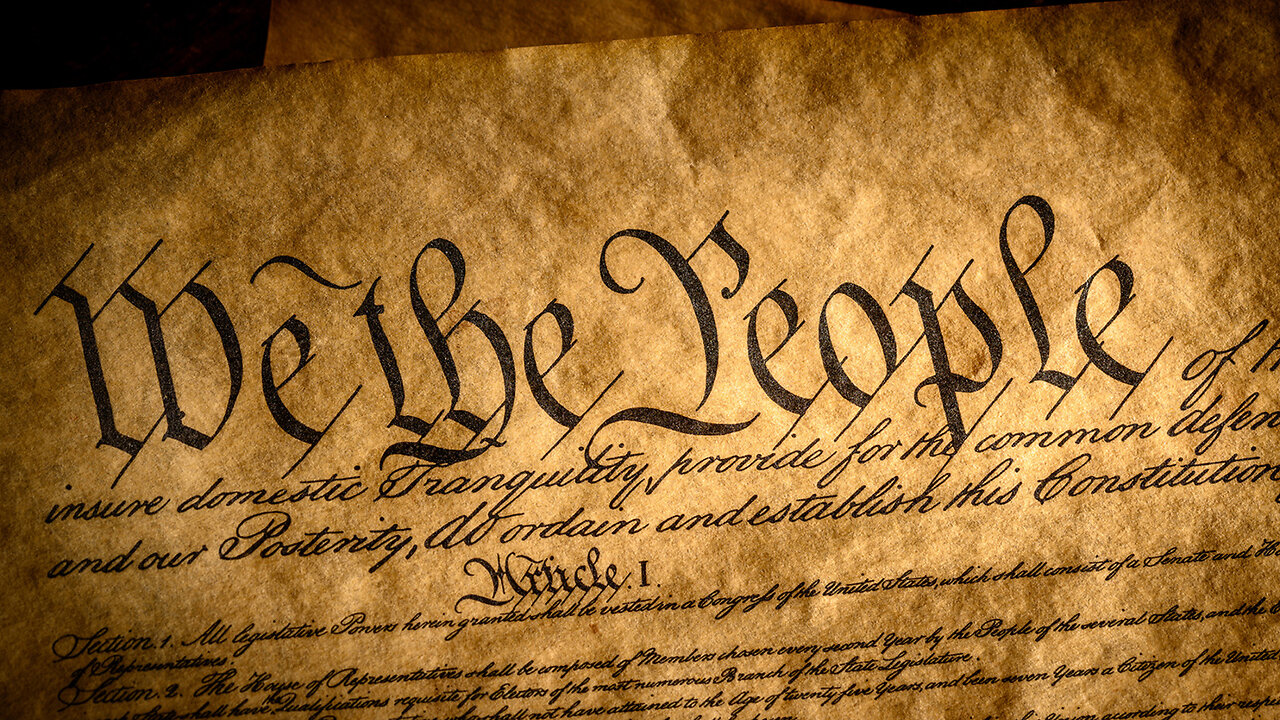 We the People of th
insure domestic Tranquility, provide for the common defen
and our Posterity, do ordain and establish this Constitution
Article. I.
Section. 1. All legislative Powers herein granted shall be vested in a Congress of the United States, which shall consist of a Senate and Ho
of Representatives.
Section. 2. The House of Representatives shall be composed of Members chosen every second Year by the People of the several States, and the
shall have Qualifications requisite for Electors of the most numerous Branch of the State Legislature.
shall not have attained to the Age of twenty five Years, and been seven Years a Citizen of the United
according to their respe